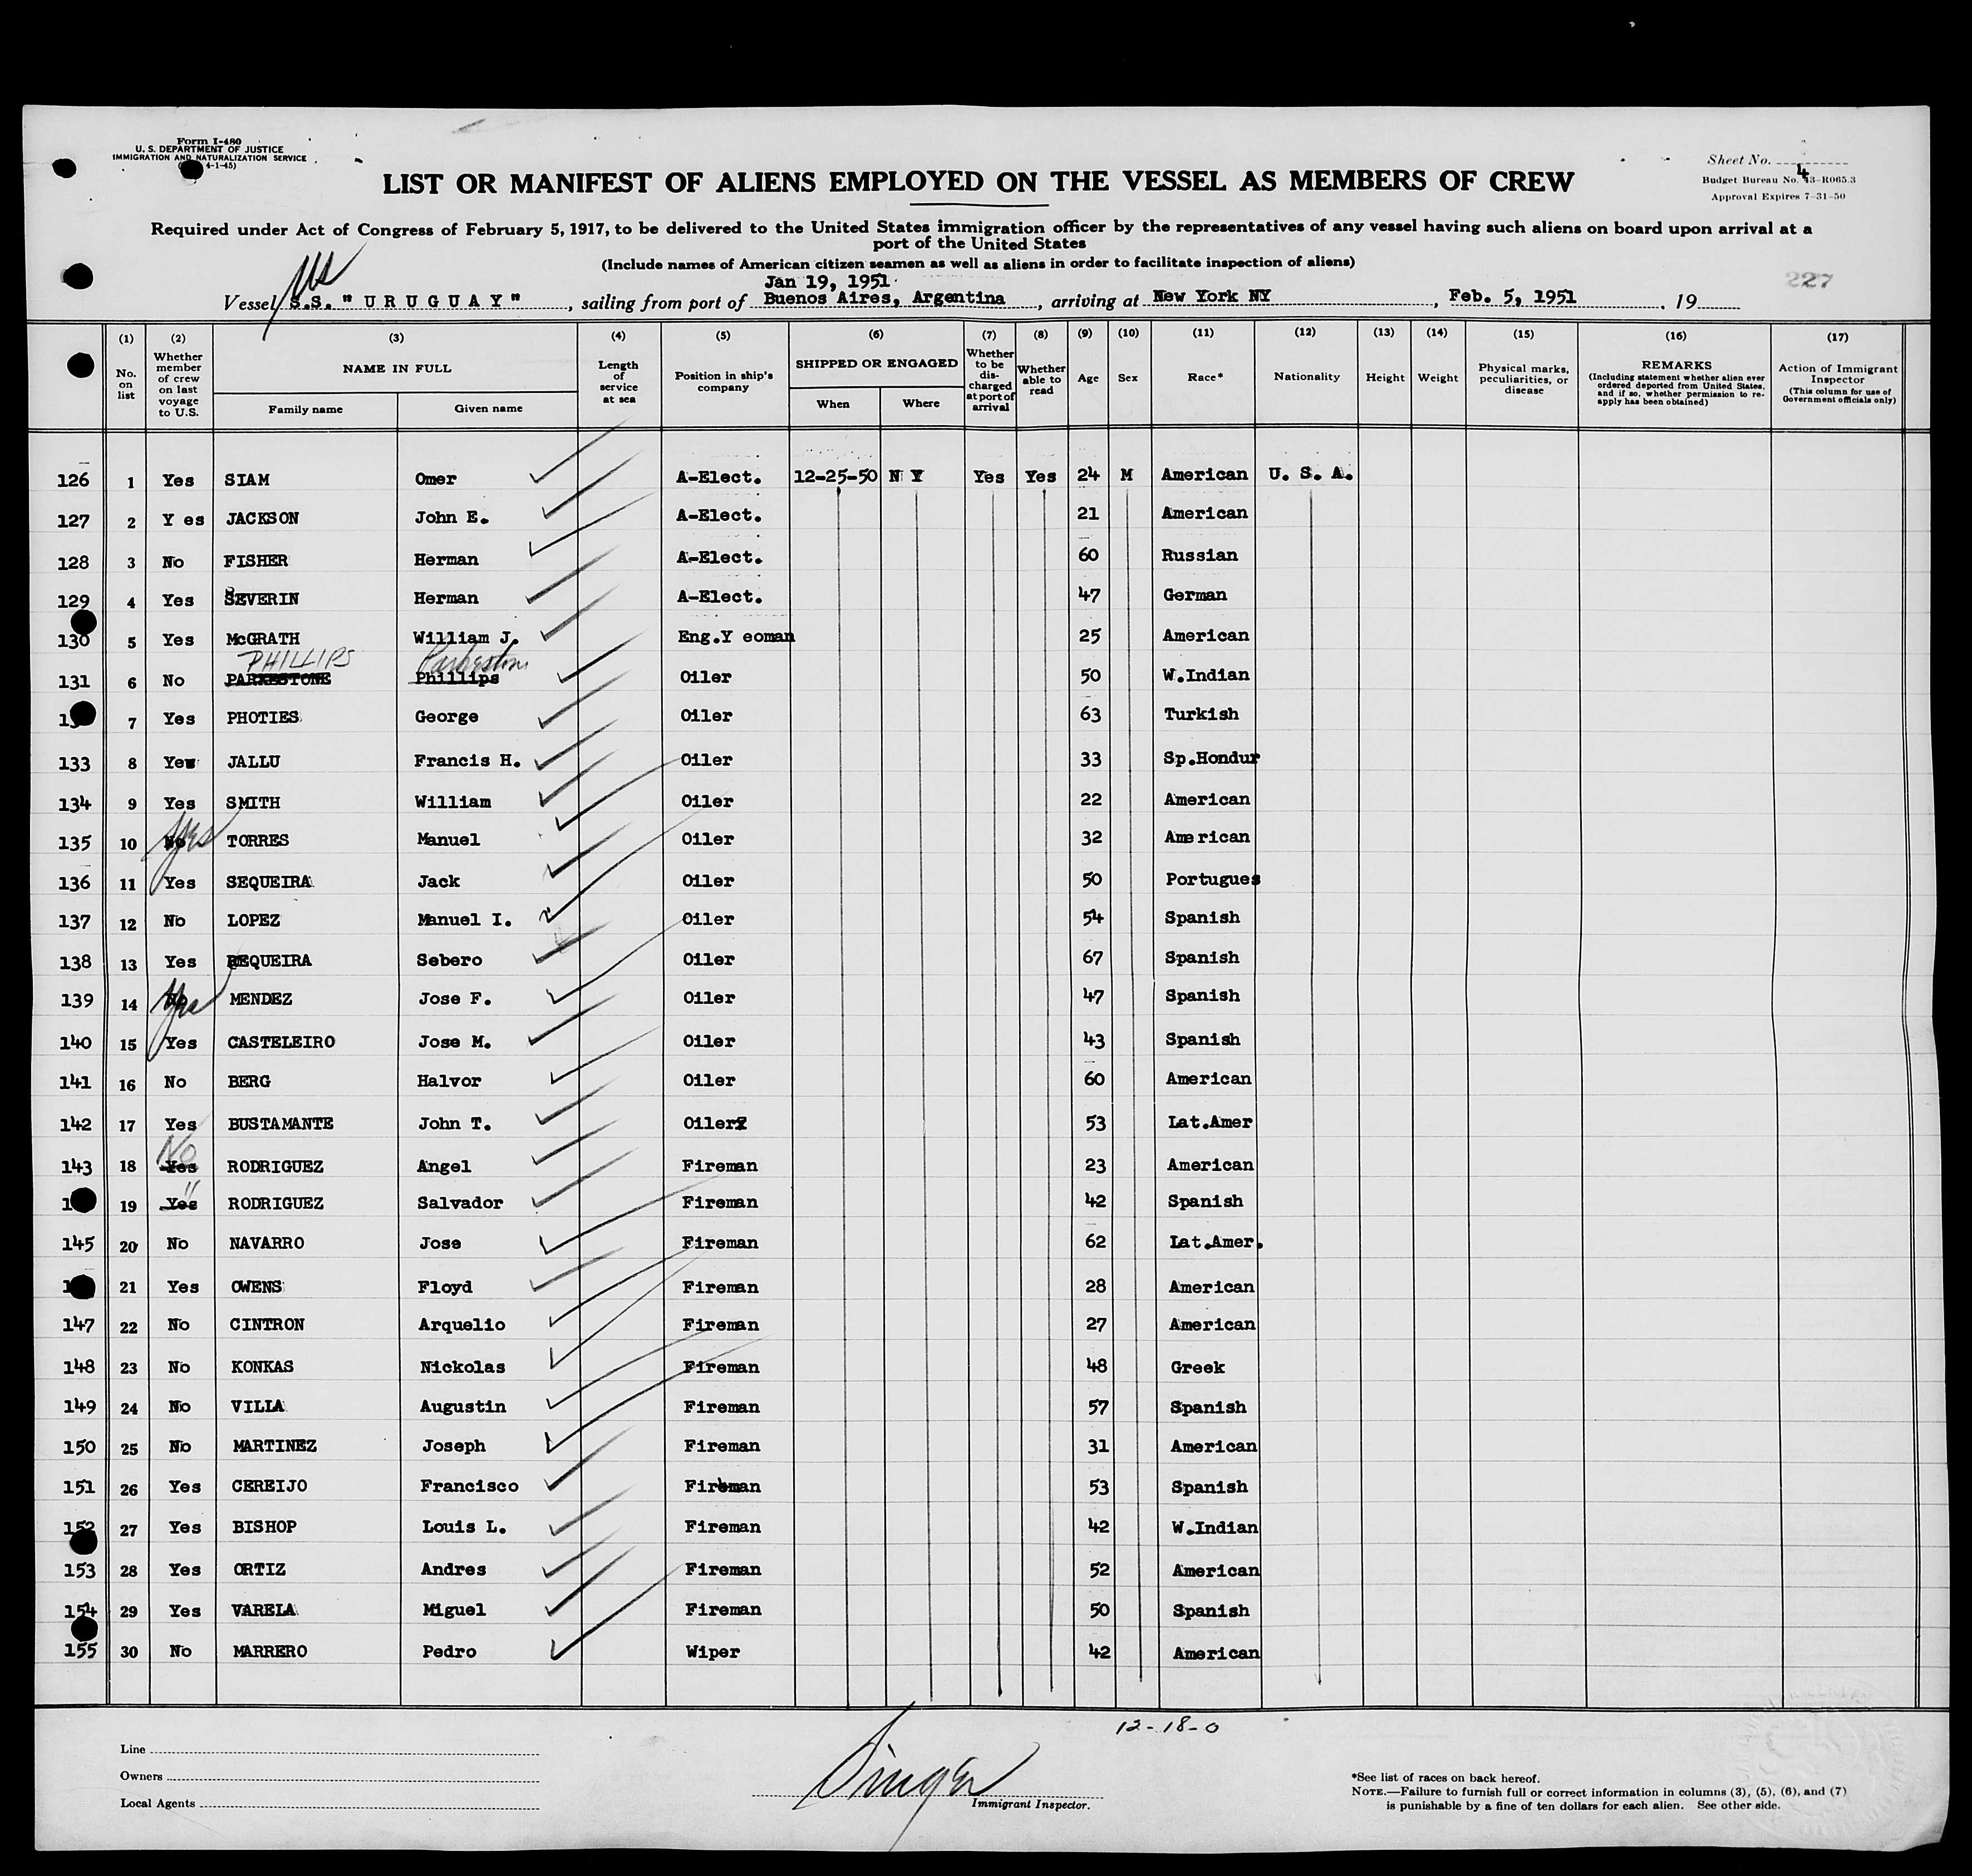 Form I-480
U. S. DEPARTMENT OF JUSTICE
IMMIGRATION AND NATURALIZATION SERVICE
4-1-45)
Sheet No. 4
Budget Bureau No. 43-R065.3
Approval Expires 7-31-50
LIST OR MANIFEST OF ALIENS EMPLOYED ON THE VESSEL AS MEMBERS OF CREW
Required under Act of Congress of February 5, 1917, to be delivered to the United States immigration officer by the representatives of any vessel having such aliens on board upon arrival at a
port of the United States
(Include names of American citizen seamen as well as aliens in order to facilitate inspection of aliens)
227
Jan 19, 1951
Vessel S.S. "URUGUAY", sailing from port of Buenos Aires, Argentina, arriving at New York NY, Feb. 5, 1951, 19
(1) No. on list
(2) Whether member of crew on last voyage to U.S.
(3) NAME IN FULL Family name Given name
(4) Length of service at sea
(5) Position in ship's company
(6) SHIPPED OR ENGAGED When Where
(7) Whether to be discharged at port of arrival
(8) Whether able to read
(9) Age
(10) Sex
(11) Race*
(12) Nationality
(13) Height
(14) Weight
(15) Physical marks, peculiarities, or disease
(16) REMARKS (Including statement whether alien ever ordered deported from United States, and if so, whether permission to re-apply has been obtained)
(17) Action of Immigrant Inspector (This column for use of Government officials only)
126 1 Yes SIAM Omer A-Elect. 12-25-50 N Y Yes Yes 24 M American U. S. A.
127 2 Y es JACKSON John E. A-Elect. 21 American
128 3 No FISHER Herman A-Elect. 60 Russian
129 4 Yes SEVERIN Herman A-Elect. 47 German
130 5 Yes McGRATH William J. Eng.Y eoman 25 American
PHILLIPS Parkestone
131 6 No PARKESTONE Phillips Oiler 50 W.Indian
7 Yes PHOTIES George Oiler 63 Turkish
133 8 Yes JALLU Francis H. Oiler 33 Sp.Hondur
134 9 Yes SMITH William Oiler 22 American
135 10 No Yes TORRES Manuel Oiler 32 American
136 11 Yes SEQUEIRA Jack Oiler 50 Portugues
137 12 No LOPEZ Manuel I. Oiler 54 Spanish
138 13 Yes REQUEIRA Sebero Oiler 67 Spanish
139 14 No Yes MENDEZ Jose F. Oiler 47 Spanish
140 15 Yes CASTELEIRO Jose M. Oiler 43 Spanish
141 16 No BERG Halvor Oiler 60 American
142 17 Yes BUSTAMANTE John T. Oiler 53 Lat.Amer
No
143 18 Yes RODRIGUEZ Angel Fireman 23 American
"
19 Yes RODRIGUEZ Salvador Fireman 42 Spanish
145 20 No NAVARRO Jose Fireman 62 Lat.Amer.
21 Yes OWENS Floyd Fireman 28 American
147 22 No CINTRON Arquelio Fireman 27 American
148 23 No KONKAS Nickolas Fireman 48 Greek
149 24 No VILLA Augustin Fireman 57 Spanish
150 25 No MARTINEZ Joseph Fireman 31 American
151 26 Yes CEREIJO Francisco Fireman 53 Spanish
152 27 Yes BISHOP Louis L. Fireman 42 W.Indian
153 28 Yes ORTIZ Andres Fireman 52 American
154 29 Yes VARELA Miguel Fireman 50 Spanish
155 30 No MARRERO Pedro Wiper 42 American
12-18-0
Line
Owners
Local Agents
Singer
Immigrant Inspector.
*See list of races on back hereof.
NOTE.—Failure to furnish full or correct information in columns (3), (5), (6), and (7)
is punishable by a fine of ten dollars for each alien. See other side.